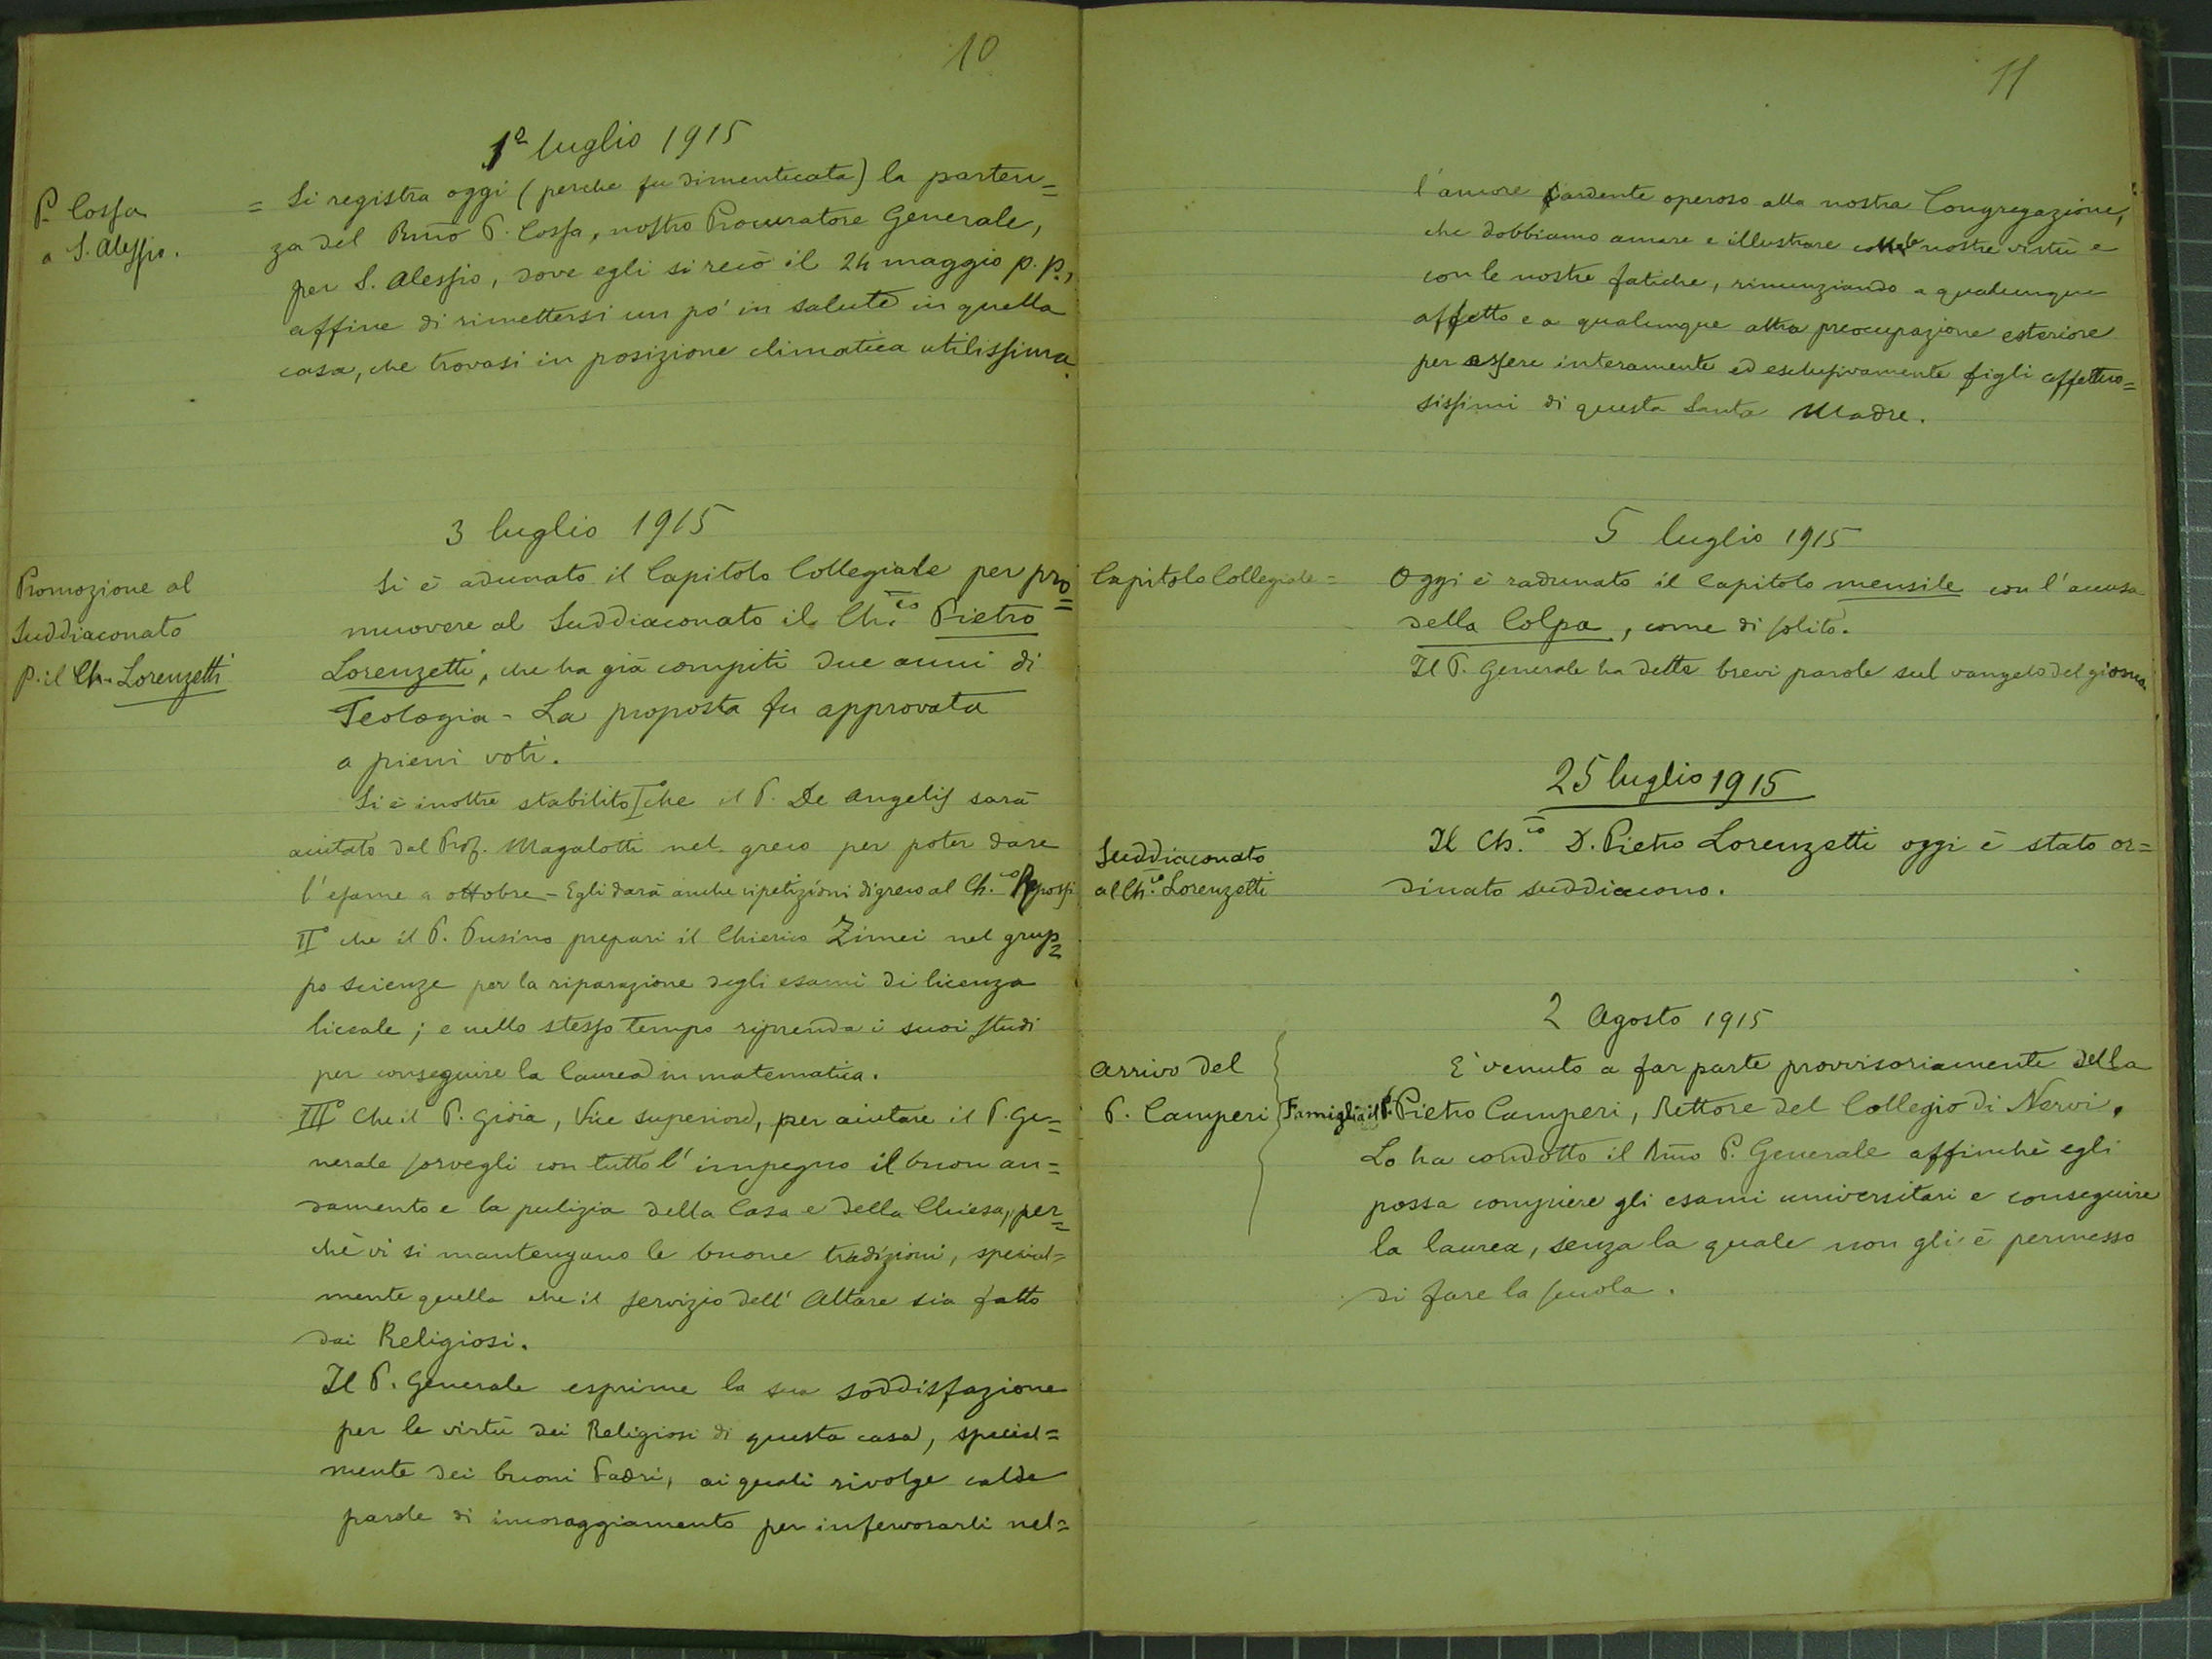 10
1º luglio 1915
P. Cossa
a S. Alessio.
= Si registra oggi (perche fu dimenticata) la parten=
za del Rmo P. Cossa, nostro Procuratore Generale,
per S. Alessio, dove egli si recò il 24 maggio p. p.,
affine di rimettersi un pó in salute in quella
casa, che trovasi in posizione climatica utilissima.
3 luglio 1915
Promozione al
Suddiaconato
p. il Ch. Lorenzetti
Si è adunato il Capitolo Collegiale per pro=
muovere al Suddiaconato il Ch.co Pietro
Lorenzetti, che ha già compiti due anni di
Teologia - La proposta fu approvata
a pieni voti.
Si è inoltre stabilito Iº che il P. De Angelis sarà
aiutato dal Prof. Magalotti nel greco per poter dare
l'esame a ottobre - Egli darà anche ripetizioni di greco al Ch.co Repossi
IIº che il P. Pusino prepari il Chierico Zimei nel grup=
po scienze per la riparazione degli esami di licenza
liceale; e nello stesso tempo riprenda i suoi studi
per conseguire la laurea in matematica.
IIIº Che il P. Gioia, Vice superiore, per aiutare il P. Ge=
nerale sorvegli con tutto l'impegno il buon an=
damento e la pulizia della Casa e della Chiesa, per=
chè vi si mantengano le buone tradizioni, special=
mente quella che il servizio dell'Altare sia fatto
dai Religiosi.
Il P. Generale esprime la sua soddisfazione
per le virtù dei Religiosi di questa casa, special=
mente dei buoni Padri, ai quali rivolge calde
parole di incoraggiamento per infervorarli nel=
11
l'amore ardente operoso alla nostra Congregazione,
che dobbiamo amare e illustrare colle nostre virtù e
con le nostre fatiche, rinunziando a qualunque
affetto e a qualunque altra preocupazione esteriore
per essere interamente ed esclusivamente figli affettuo=
sissimi di questa Santa Madre.
5 luglio 1915
Capitolo Collegiale =
Oggi è radunato il Capitolo mensile con l'accusa
della Colpa, come di solito.
Il P. Generale ha dette brevi parole sul vangelo del giorno.
25 luglio 1915
Suddiaconato
al Ch.co Lorenzetti
Il Ch.co D. Pietro Lorenzetti oggi è stato or=
dinato suddiacono.
2 Agosto 1915
Arrivo del
P. Camperi
E' venuto a far parte provvisoriamente della
Famiglia il P. Pietro Camperi, Rettore del Collegio di Nervi.
Lo ha condotto il Rmo P. Generale affinchè egli
possa compiere gli esami universitari e conseguire
la laurea, senza la quale non gli è permesso
di fare la scuola.